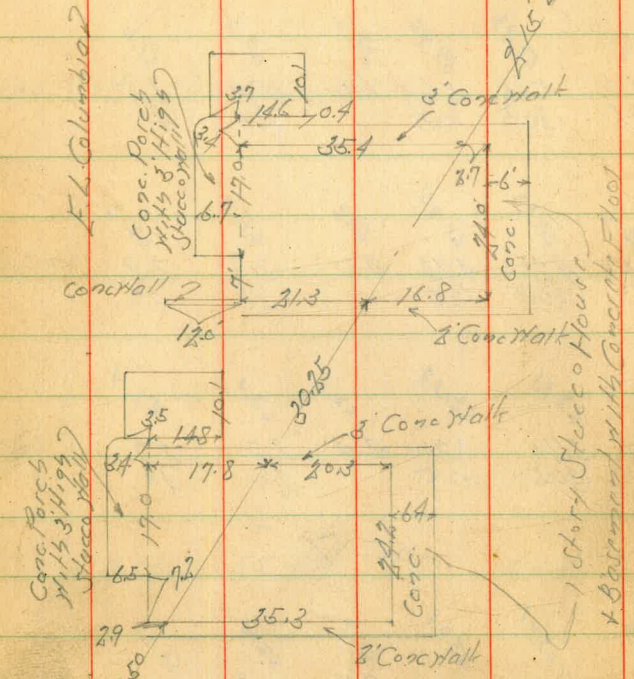 15
E. L. Columbia
Conc. Porch
With 3' High
Stucco Wall
3.7
14.6
10.1
0.4
3' Conc Walk
35.4
17.0
6.7
2.7
6'
24.0
Conc.
7'
Conc Wall
12.0
21.3
16.8
2' Conc Walk
30.25
10.1
3.5
14.8
3' Conc Walk
3.4
17.8
20.3
Conc. Porch
With 3' High
Stucco Wall
17.0
6.4
24.2
Conc.
6.5
7.2
2.9
35.3
2' Conc Walk
50
1 Story Stucco House
+ Basement With Concrete Floor